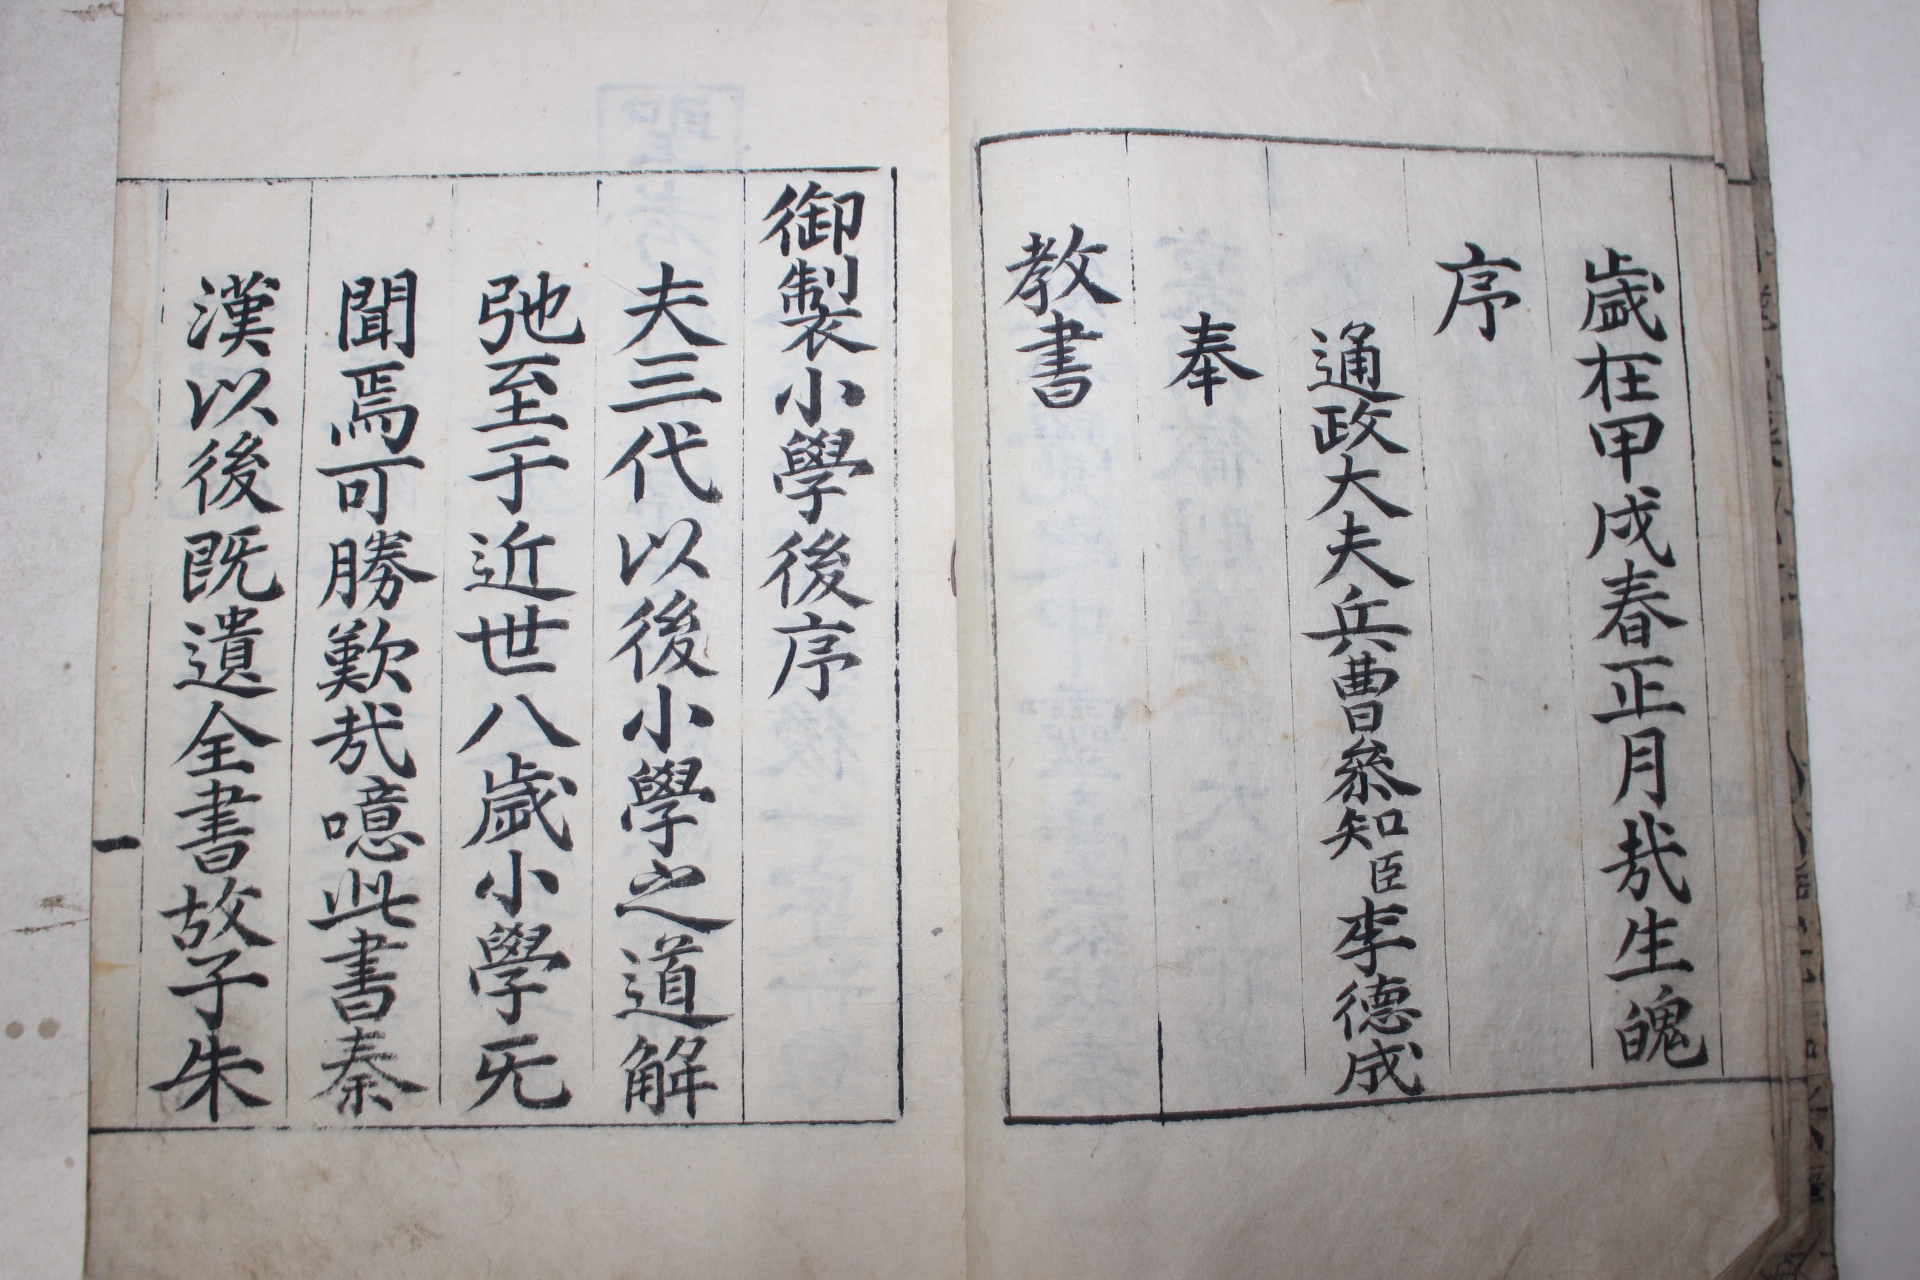 歲在甲戌春正月哉生魄
序
通政大夫兵曹叅知臣李德成
奉
教書
御製小學後序
夫三代以後小學之道解
弛至于近世八歲小學旡
聞焉可勝歎哉噫此書秦
漢以後旣遺全書故子朱
一